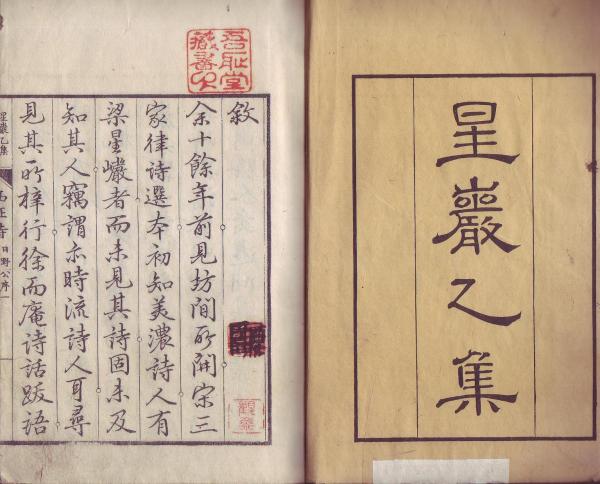 星巖乙集
敘
余十餘年前見坊間所開宋三
家律詩選本初知美濃詩人有
梁星巗者而未見其詩固未及
知其人竊謂亦時流詩人耳尋
見其所梓行徐而庵詩話跋語
星巖乙集
日野公序
吾耻堂
藏書印